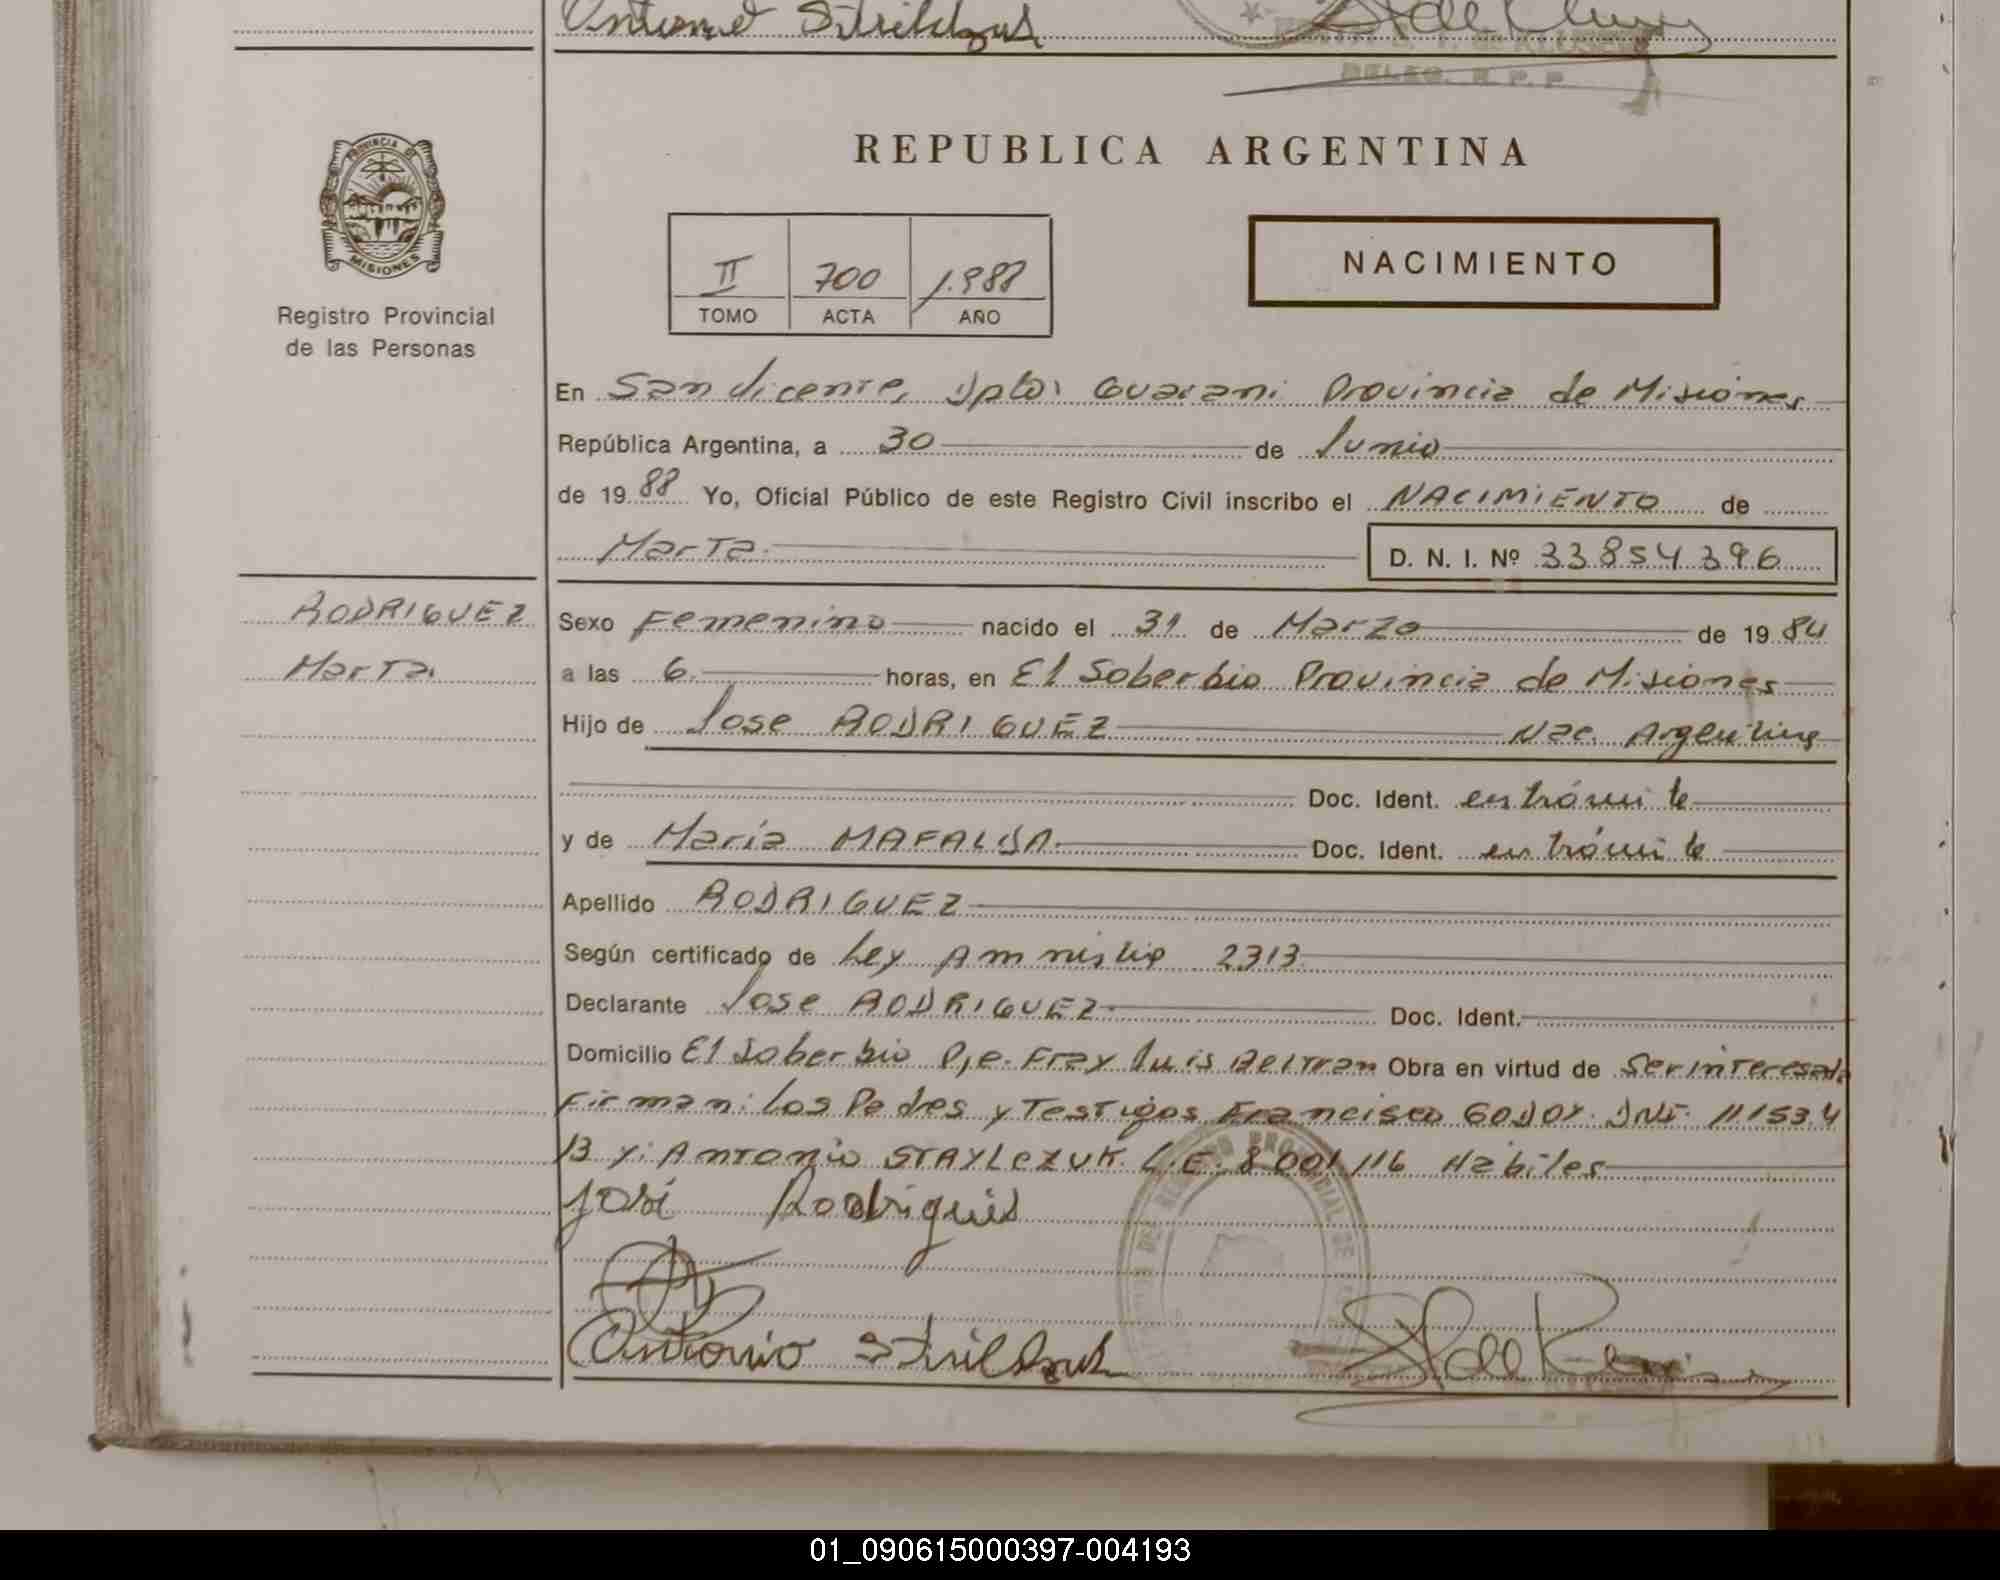 Antonio
DELEG. R. P. P.
PROVINCIA DE
MISIONES
Registro Provincial
de las Personas
REPUBLICA ARGENTINA
II 700 1.988
TOMO ACTA AÑO
NACIMIENTO
En San Vicente, Dpto: Guarani Provincia de Misiones
República Argentina, a 30 de Junio
de 1988 Yo, Oficial Público de este Registro Civil inscribo el NACIMIENTO de
Marta. D. N. I. Nº 33854396
RODRIGUEZ
Marta.
Sexo Femenino nacido el 31 de Marzo de 1984
a las 6. horas, en El Soberbio Provincia de Misiones
Hijo de Jose RODRIGUEZ Nac. Argentina
Doc. Ident. en trámite
y de María MAFALDA. Doc. Ident. en trámite
Apellido RODRIGUEZ
Según certificado de Ley Amnistia 2313.
Declarante Jose RODRIGUEZ. Doc. Ident.
Domicilio El Soberbio Pje. Fray Luis Beltran Obra en virtud de Ser interesado
Firman: Los Padres y Testigos Francisco GODOY. DNI. 11153.4
13 y: Antonio STAYLCZUK. L.E. 8001116 Habiles
José Rodriguis
Antonio
01_090615000397-004193